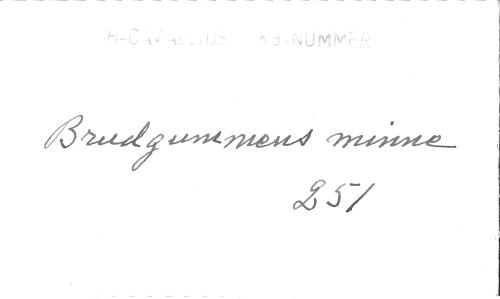 H-CAVALLIUS KB-NUMMER
Brudgummens minne
251